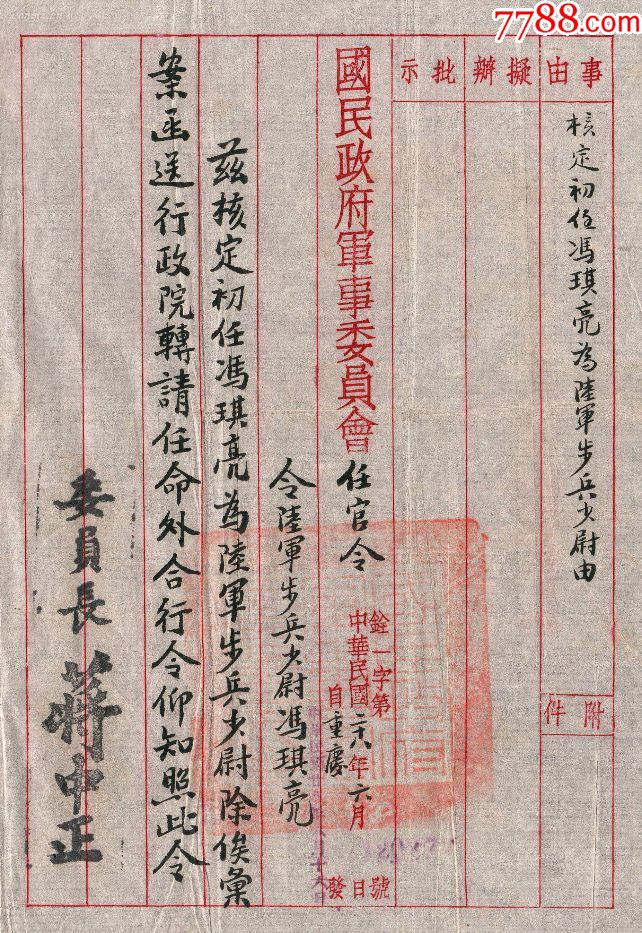 7788.com
事由
擬辦
批示
核定初任馮琪亮為陸軍步兵少尉由
附件
國民政府軍事委員會任官令
銓一字第 號
中華民國二十八年六月 日
自重慶發
令陸軍步兵少尉馮琪亮
茲核定初任馮琪亮為陸軍步兵少尉除俟彙
案函送行政院轉請任命外合行令仰知照此令
委員長蔣中正